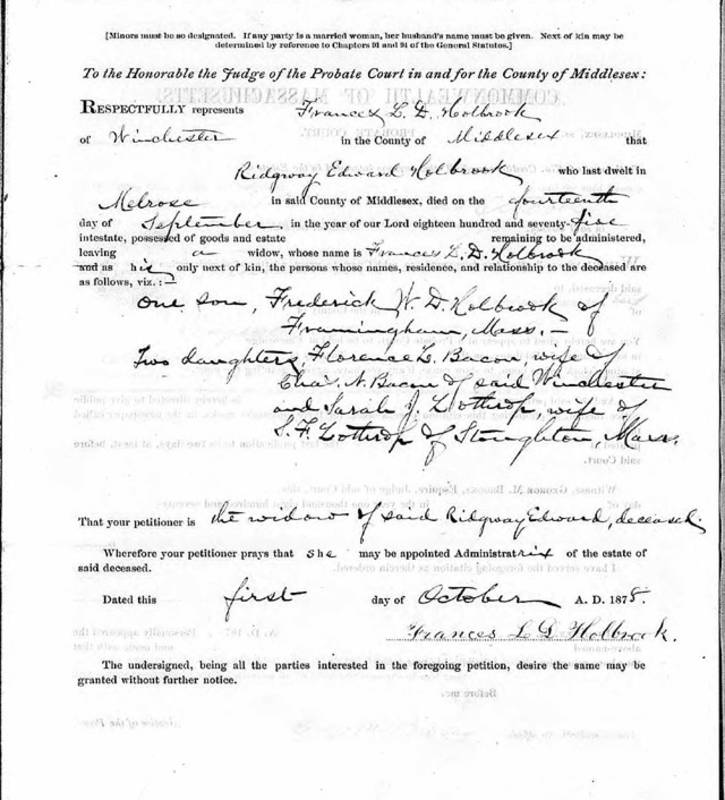 [Minors must be so designated. If any party is a married woman, her husband's name must be given. Next of kin may be
determined by reference to Chapters 91 and 94 of the General Statutes.]
To the Honorable the Judge of the Probate Court in and for the County of Middlesex:
RESPECTFULLY represents Frances L. D. Holbrook
of Winchester in the County of Middlesex that
Ridgway Edward Holbrook who last dwelt in
Melrose in said County of Middlesex, died on the fourteenth
day of September, in the year of our Lord eighteen hundred and seventy-five
intestate, possessed of goods and estate remaining to be administered,
leaving a widow, whose name is Frances L. D. Holbrook
and as his only next of kin, the persons whose names, residence, and relationship to the deceased are
as follows, viz.:—
One son, Frederick W. D. Holbrook of
Framingham, Mass. —
Two daughters, Florence L. Bacon, wife of
Cha's N. Bacon of said Winchester
and Sarah J. Lothrop, wife of
S. F. Lothrop of Stoughton, Mass.
That your petitioner is the widow of said Ridgway Edward, deceased.
Wherefore your petitioner prays that she may be appointed Administratrix of the estate of
said deceased.
Dated this first day of October A. D. 1875.
Frances L D Holbrook.
The undersigned, being all the parties interested in the foregoing petition, desire the same may be
granted without further notice.